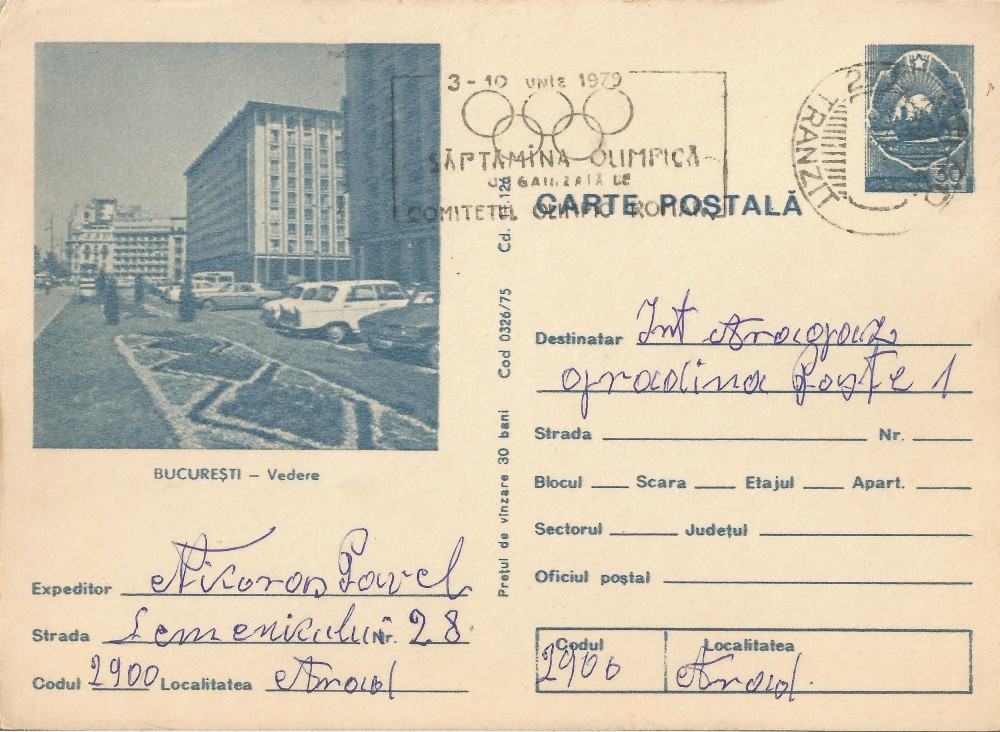 3-10 UNIE 1979
SĂPTĂMÎNA OLIMPICĂ
COMITETUL OLIMPIC ROMAN
TRANZIT
CARTE POŞTALĂ
BUCUREŞTI – Vedere
Expeditor Pavel
Strada Semenicului Nr. 28
Codul 2900 Localitatea Arad
Preţul de vînzare 30 bani Cod 0326/75 Cd. II. 126
Destinatar Int Aragaz
gradina Poşte 1
Strada Nr.
Blocul Scara Etajul Apart.
Sectorul Judeţul
Oficiul poştal
Codul Localitatea
2900 Arad